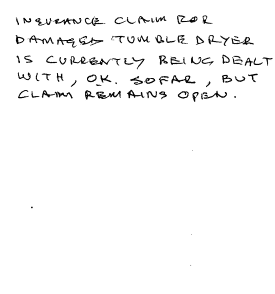 INSURANCE CLAIM FOR
DAMAGED TUMBLE DRYER
IS CURRENTLY BEING DEALT
WITH, OK. SOFAR, BUT
CLAIM REMAINS OPEN.